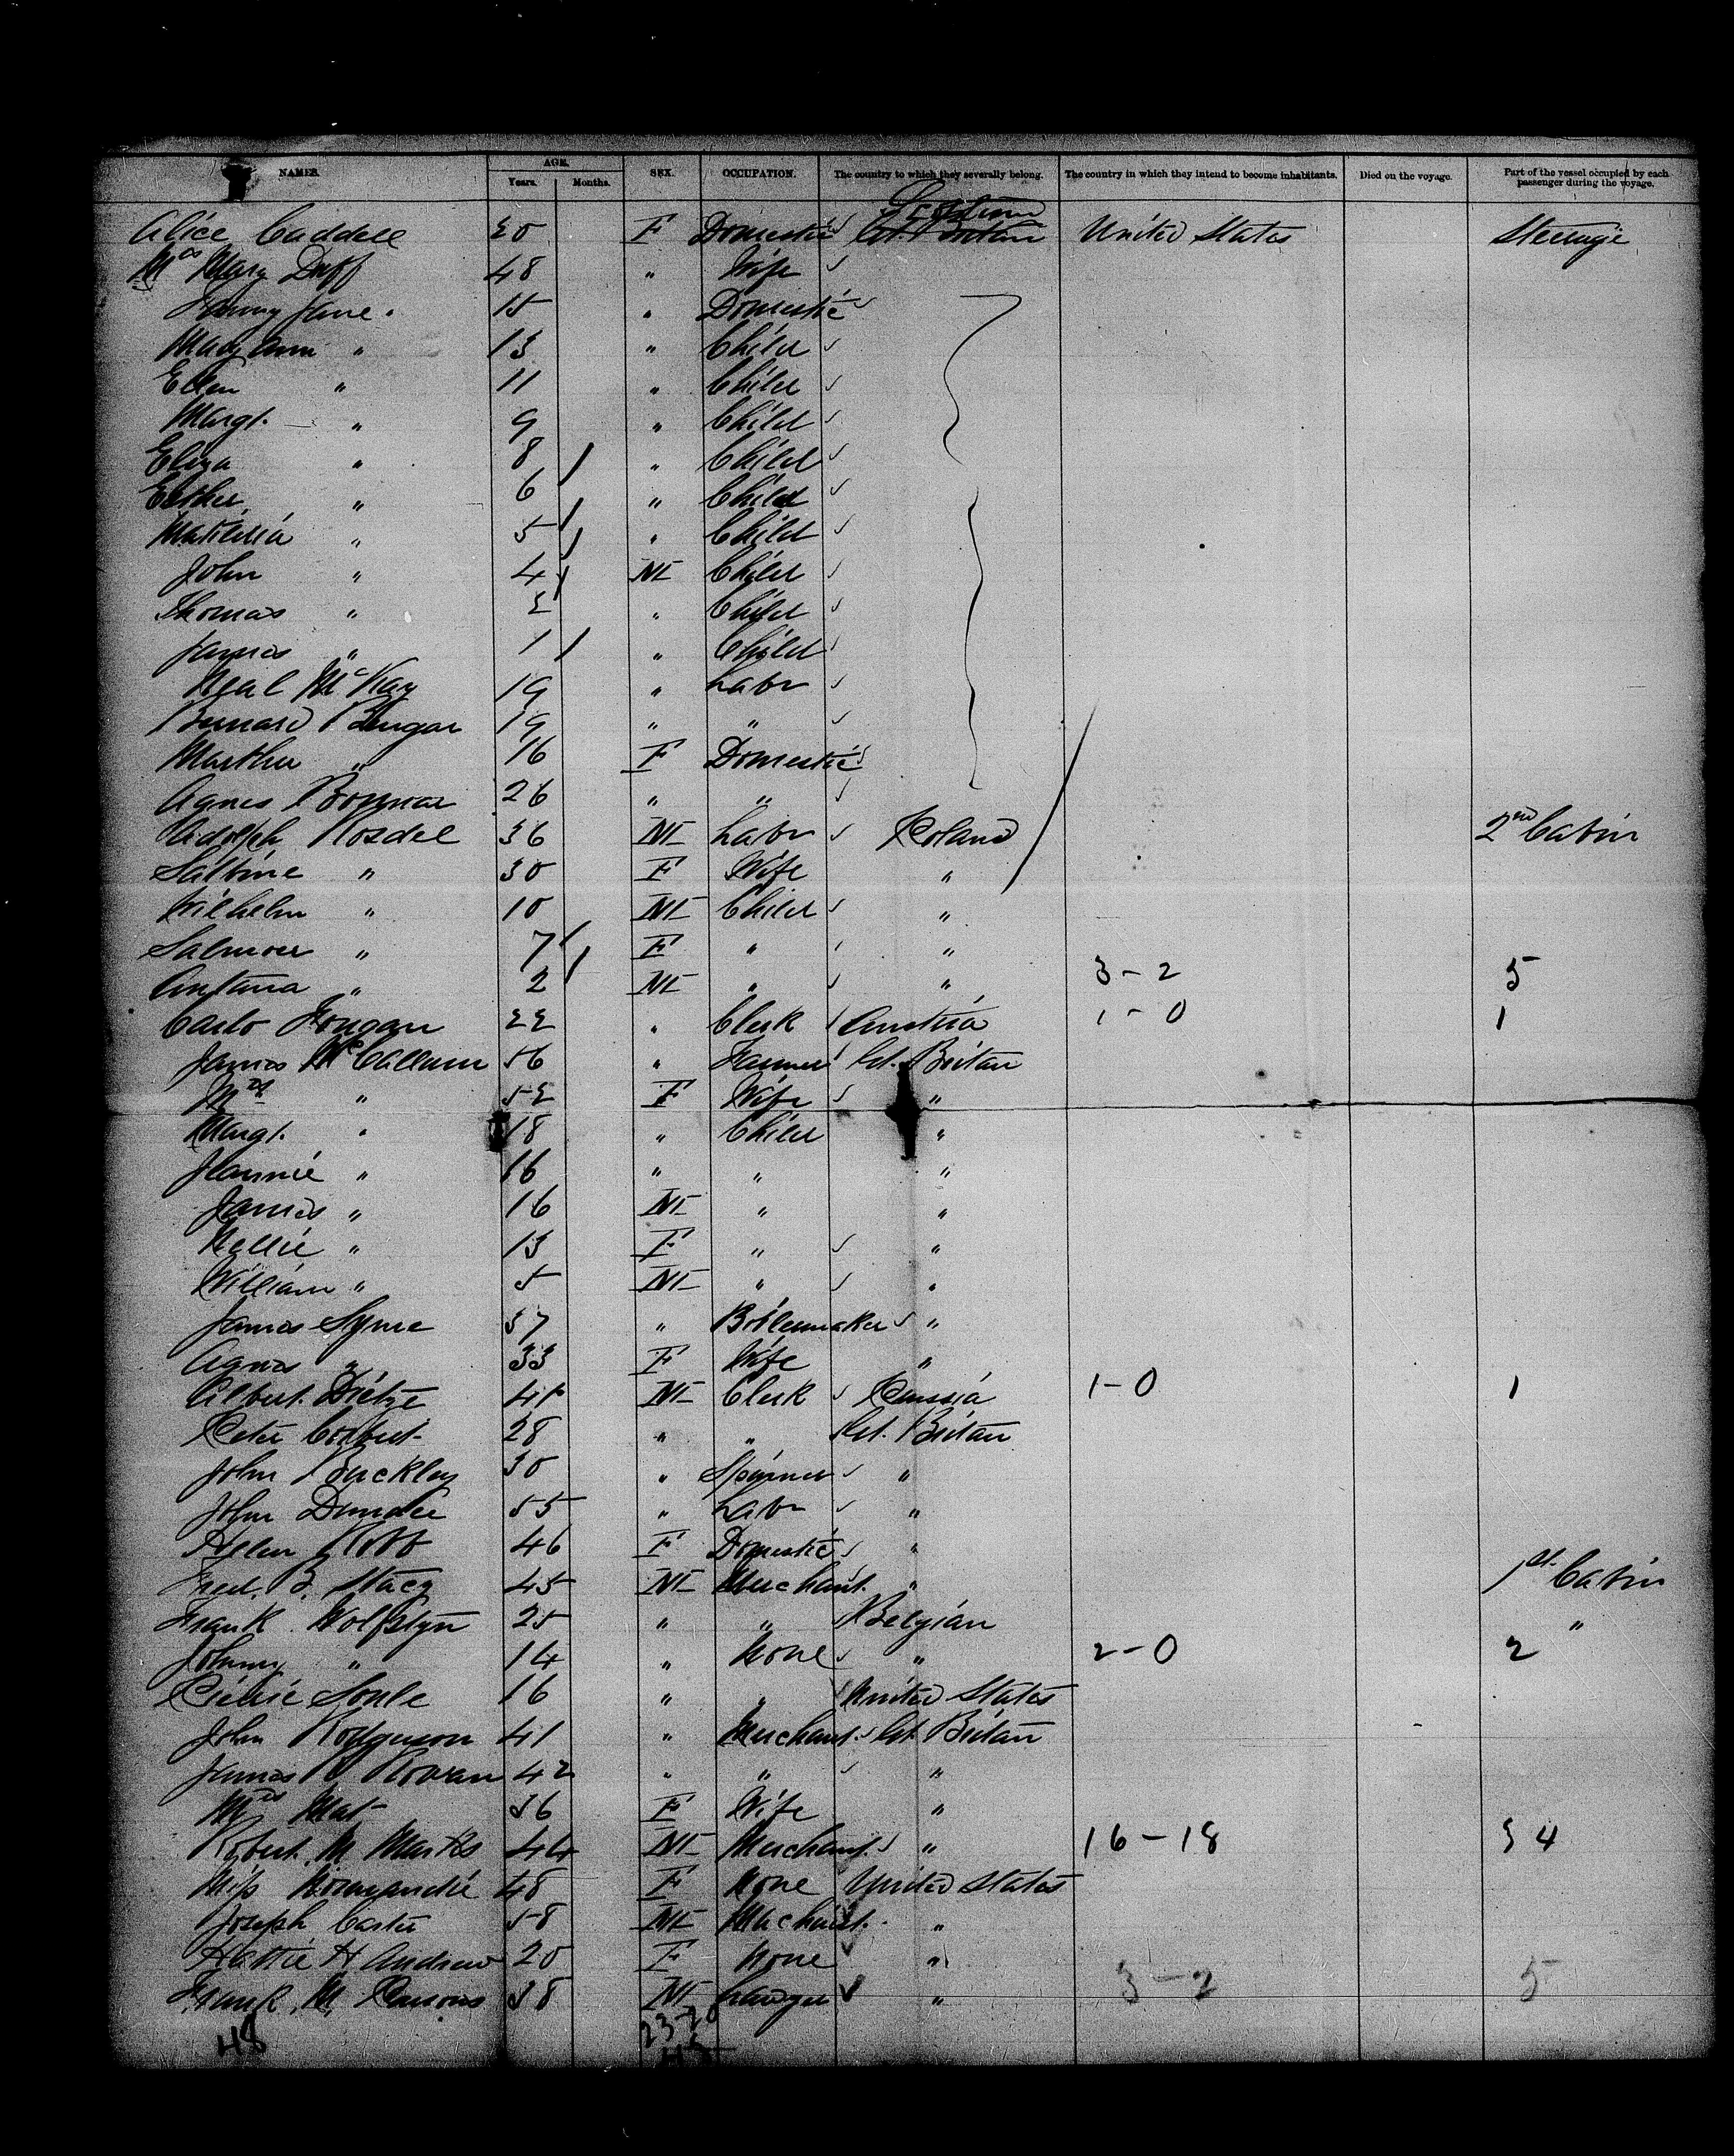 NAMES. AGE. Years. Months. SEX. OCCUPATION. The country to which they severally belong. The country in which they intend to become inhabitants. Died on the voyage. Part of the vessel occupied by each passenger during the voyage.
Alice Caddell 20 F Domestic Gt. Britan United States Steerage
Mrs Mary Duff 48 " Wife
Fanny Jane " 15 " Domestic
Mary Ann " 13 " Child
Ellen " 11 " Child
Margt. " 9 " Child
Eliza " 8 " Child
Esther " 6 " Child
Matilda " 5 " Child
John " 4 M Child
Thomas " 2 " Child
James " 1 " Child
Neal McKay 19 " Labr
Bernard 19 " "
Martha " 16 F Domestic
Agnes 26 " "
Adolph Rosdel 36 M Labr Poland 2nd Cabin
Salbine " 30 F Wife "
Wilhelm " 10 M Child "
" 7 F " "
Antana " 2 M " " 3-2 5
Carlo 22 " Clerk Austria 1-0 1
James McCallum 56 " Farmer Gt. Britan
Mrs " 52 F Wife "
Margt. " 18 " Child "
Jeannie " 16 " " "
James " 16 M " "
Nellie " 13 F " "
William " 5 M " "
James Syme 37 " Boilermaker "
Agnes " 33 F Wife "
Albert Dietze 41 M Clerk Russia 1-0 1
Peter Corbet 28 " " Gt. Britan
John Buckley 30 " Spinner "
John Dundee 55 " Labr "
Helen Robb 46 F Domestic "
Fred. B. Stacy 45 M Merchant. " 1st Cabin
Frank Wolfstyn 25 " " Belgian "
Johnny " 14 " None " 2-0 2
Soule 16 " " United States
John Hodgsson 41 " Merchant. Gt. Britan
James Rowan 42 " " "
Mrs Mat 36 F Wife "
Robert M Marks 44 M Merchant. " 16-18 34
Miss Normandie 48 F None United States
Joseph Carter 58 M Machinist. "
Hattie H Andrew 20 F None "
Frank M. Parsons 38 M Lawyer " 3-2 5
48 23-20